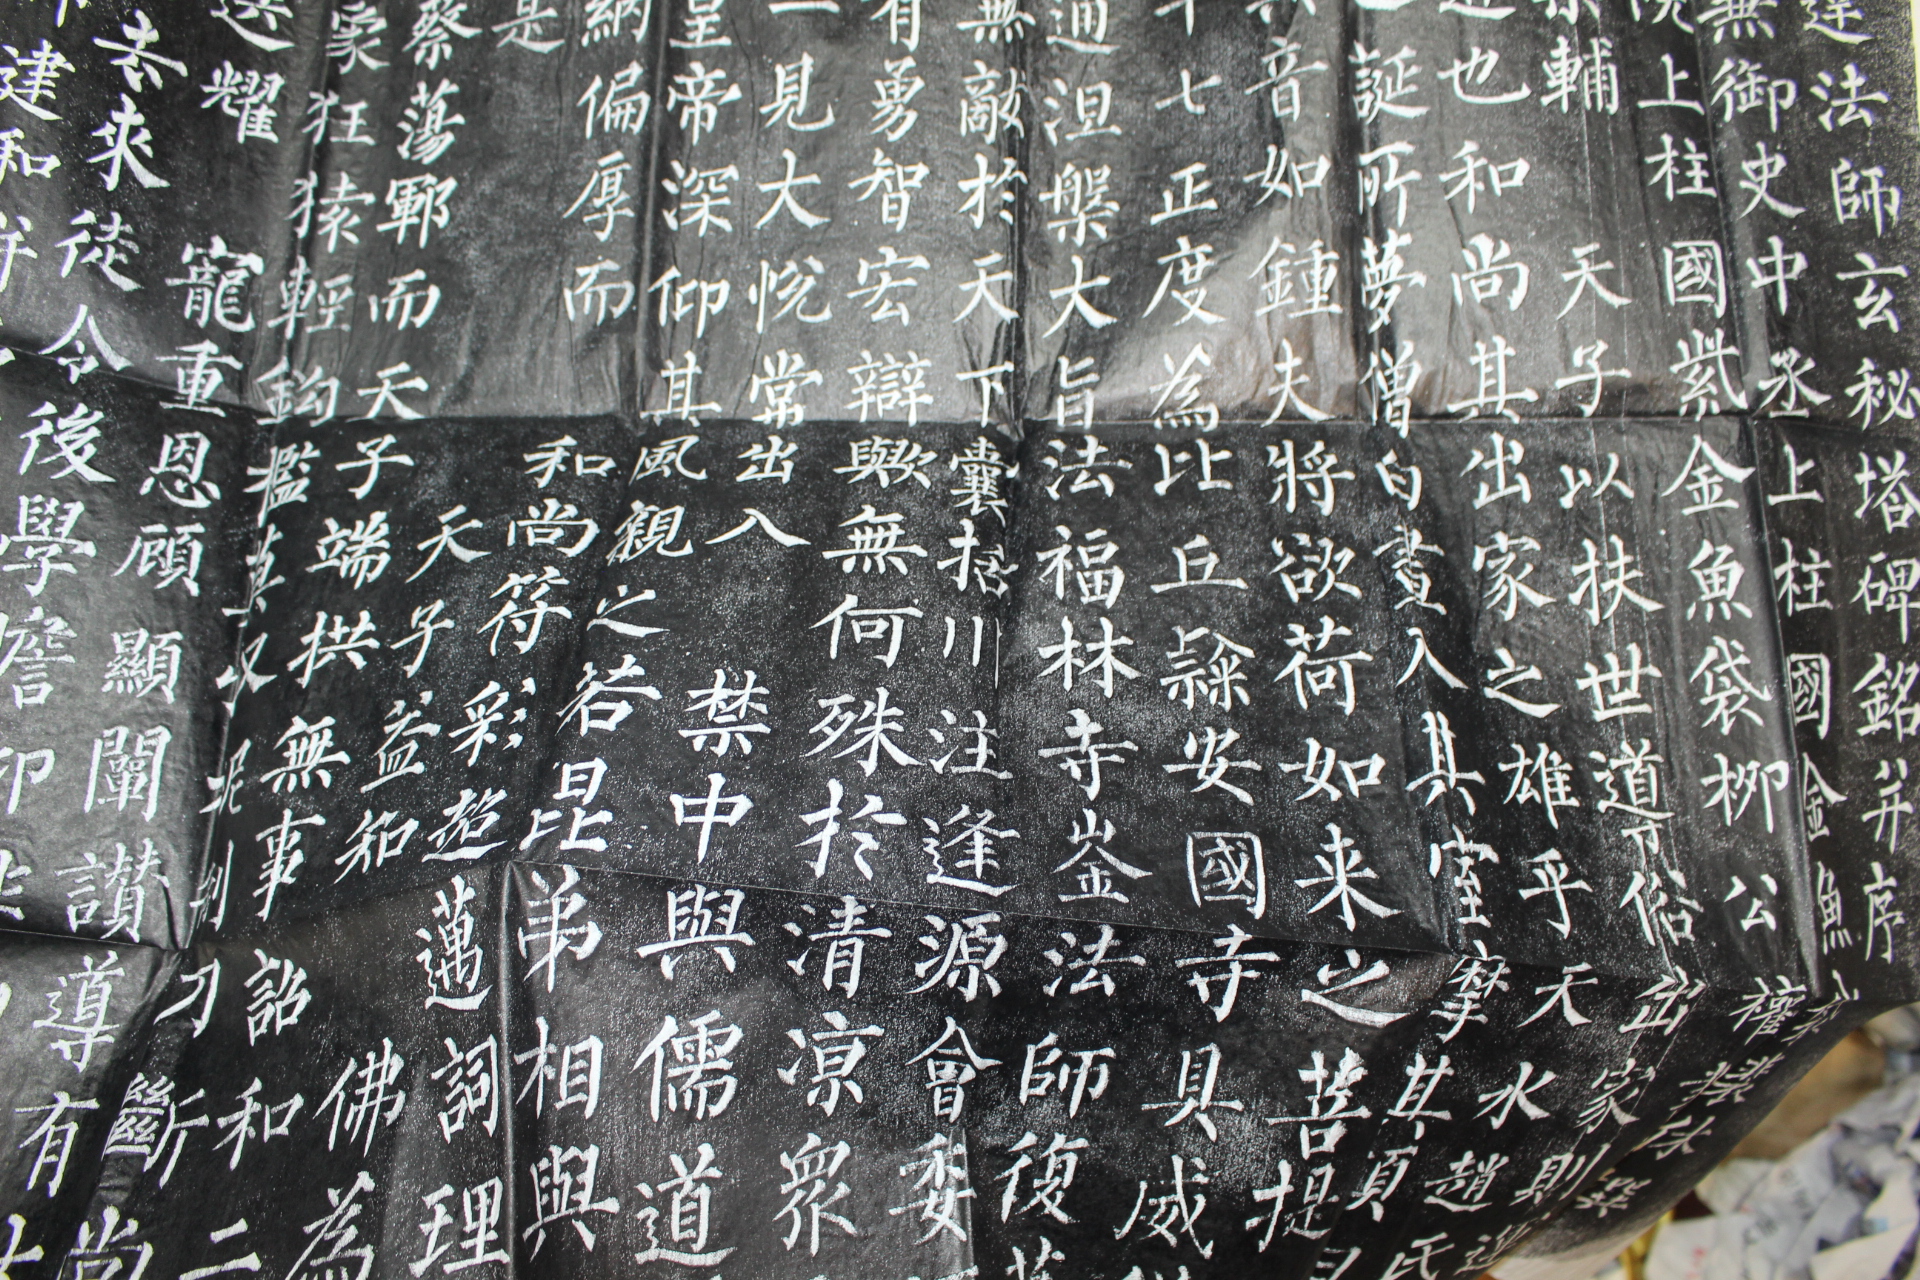 達法師玄秘塔碑銘并序
無御史中丞上柱國金魚
院上柱國紫金魚袋柳公權
輔天子以扶世導俗出家則
也和尚其出家之雄乎天水趙氏
誕所夢僧白晝入其室摩其頂曰
音如鍾夫將欲荷如来之菩提
十七正度為比丘隷安國寺具威
通涅槃大旨法福林寺崟法師復夢
無敵於天下囊括川注逢源會委
有勇智宏辯歟無何殊於清凉眾
一見大悅常出入禁中與儒道
皇帝深仰其風親之若昆弟相與
納偏厚而和尚符彩超邁詞理
是天子益知佛為
蔡蕩鄆而天子端拱無事詔和二
家狂猿輕鈎檻莫收泥制刀斷尚
送耀寵重恩顧顯闡讃導有
去來徒令後學瞻仰
建和